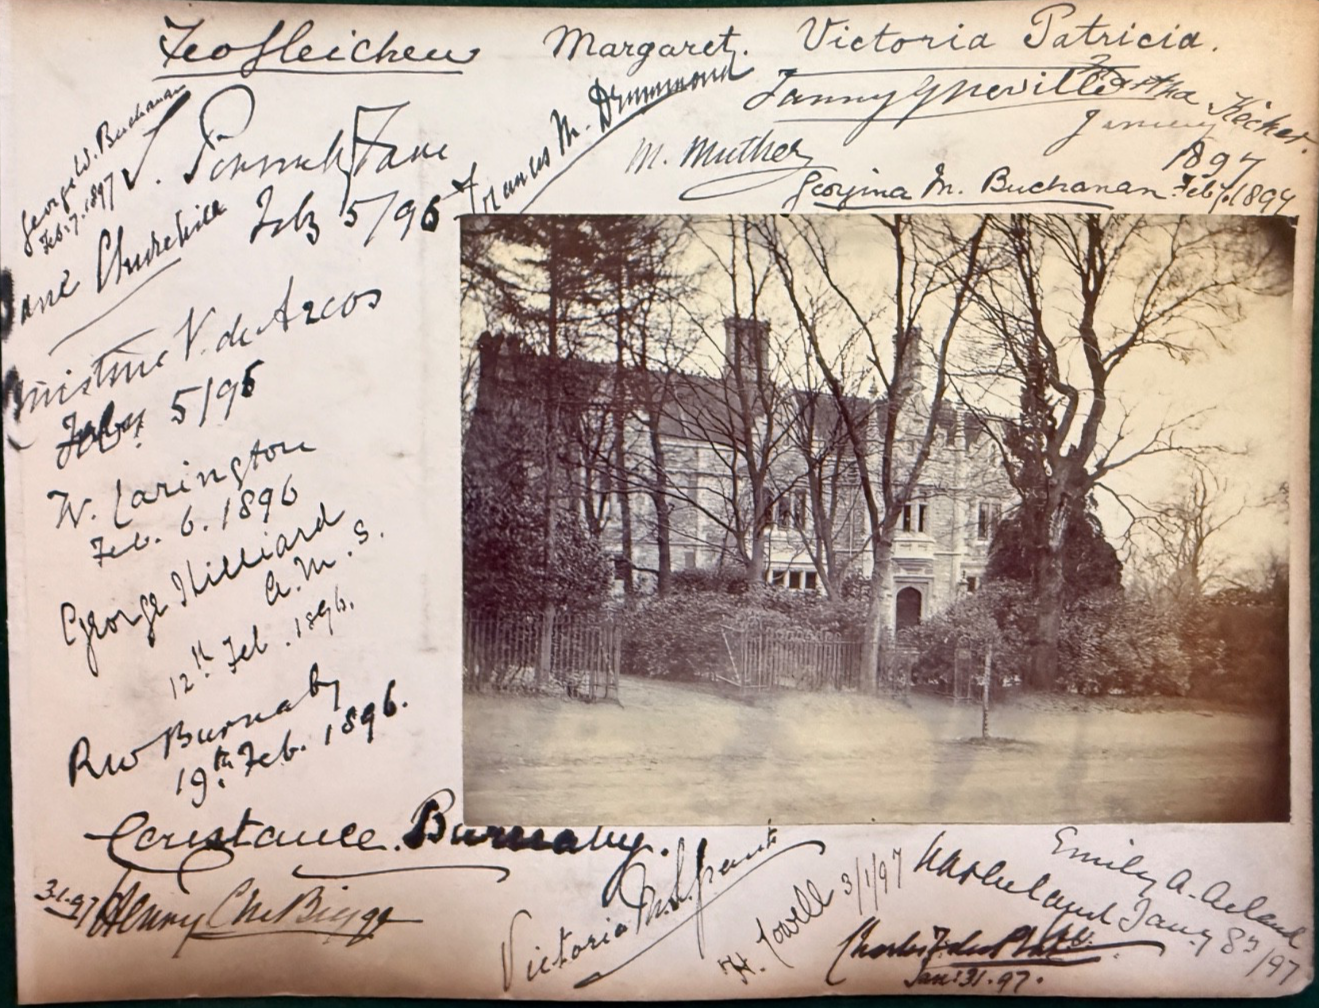 Feo Gleichen
Margaret.
Victoria Patricia.
George W. Buchanan
Feb. 7. 1897
Fane
Feb 5/96
Frances M. Drummond
Fanny G Neville
1897
M. Muther
Georgina M. Buchanan Feb 7. 1897
Jane Churchill
V. de Arcos
5/96
W. Carington
Feb. 6. 1896
George Hilliard
A.M.S.
12th Feb. 1896.
RW Burnaby
19th Feb. 1896.
Constance Burnaby.
3.1.97
Henry
Victoria M. S. Grant
H. Cowell 3/1/97
Emily A. Acland
Jany 8th/97
Charles J. du Plat
Jan: 31. 97.